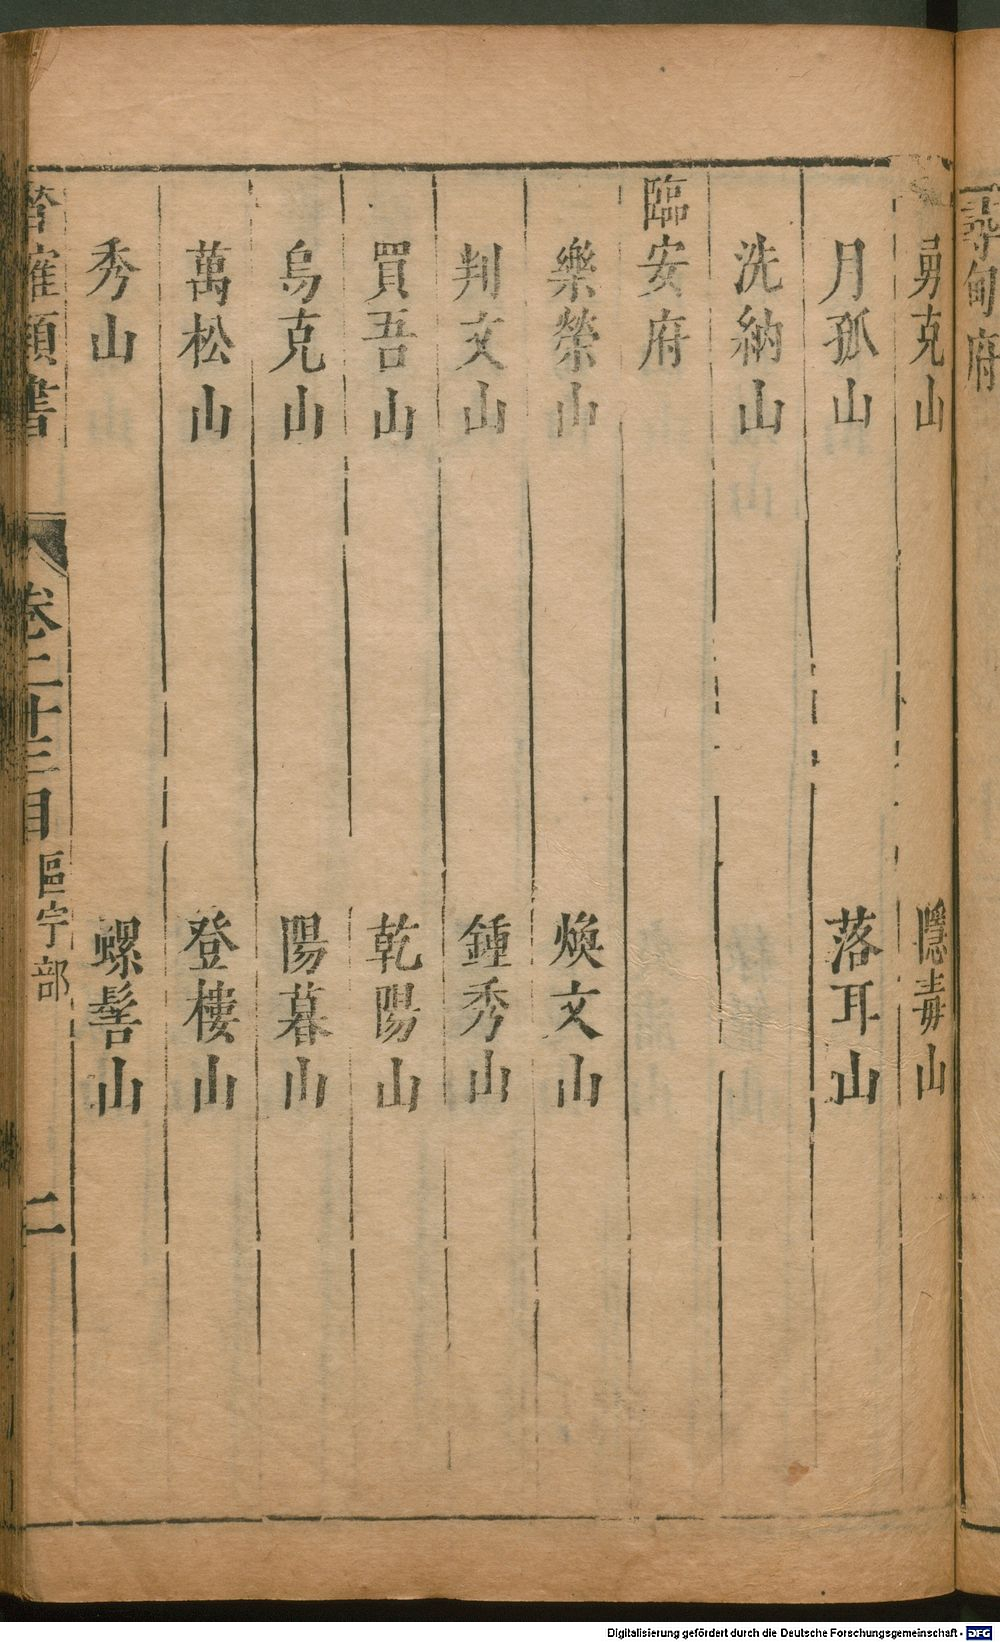 尋甸府
勇克山　隱毒山
月孤山　落耳山
洗納山
臨安府
樂榮山　煥文山
判文山　鍾秀山
買吾山　乾陽山
烏克山　陽暮山
萬松山　登樓山
秀山　螺髻山
卷二十三目　區宇部　二
Digitalisierung gefördert durch die Deutsche Forschungsgemeinschaft - DFG